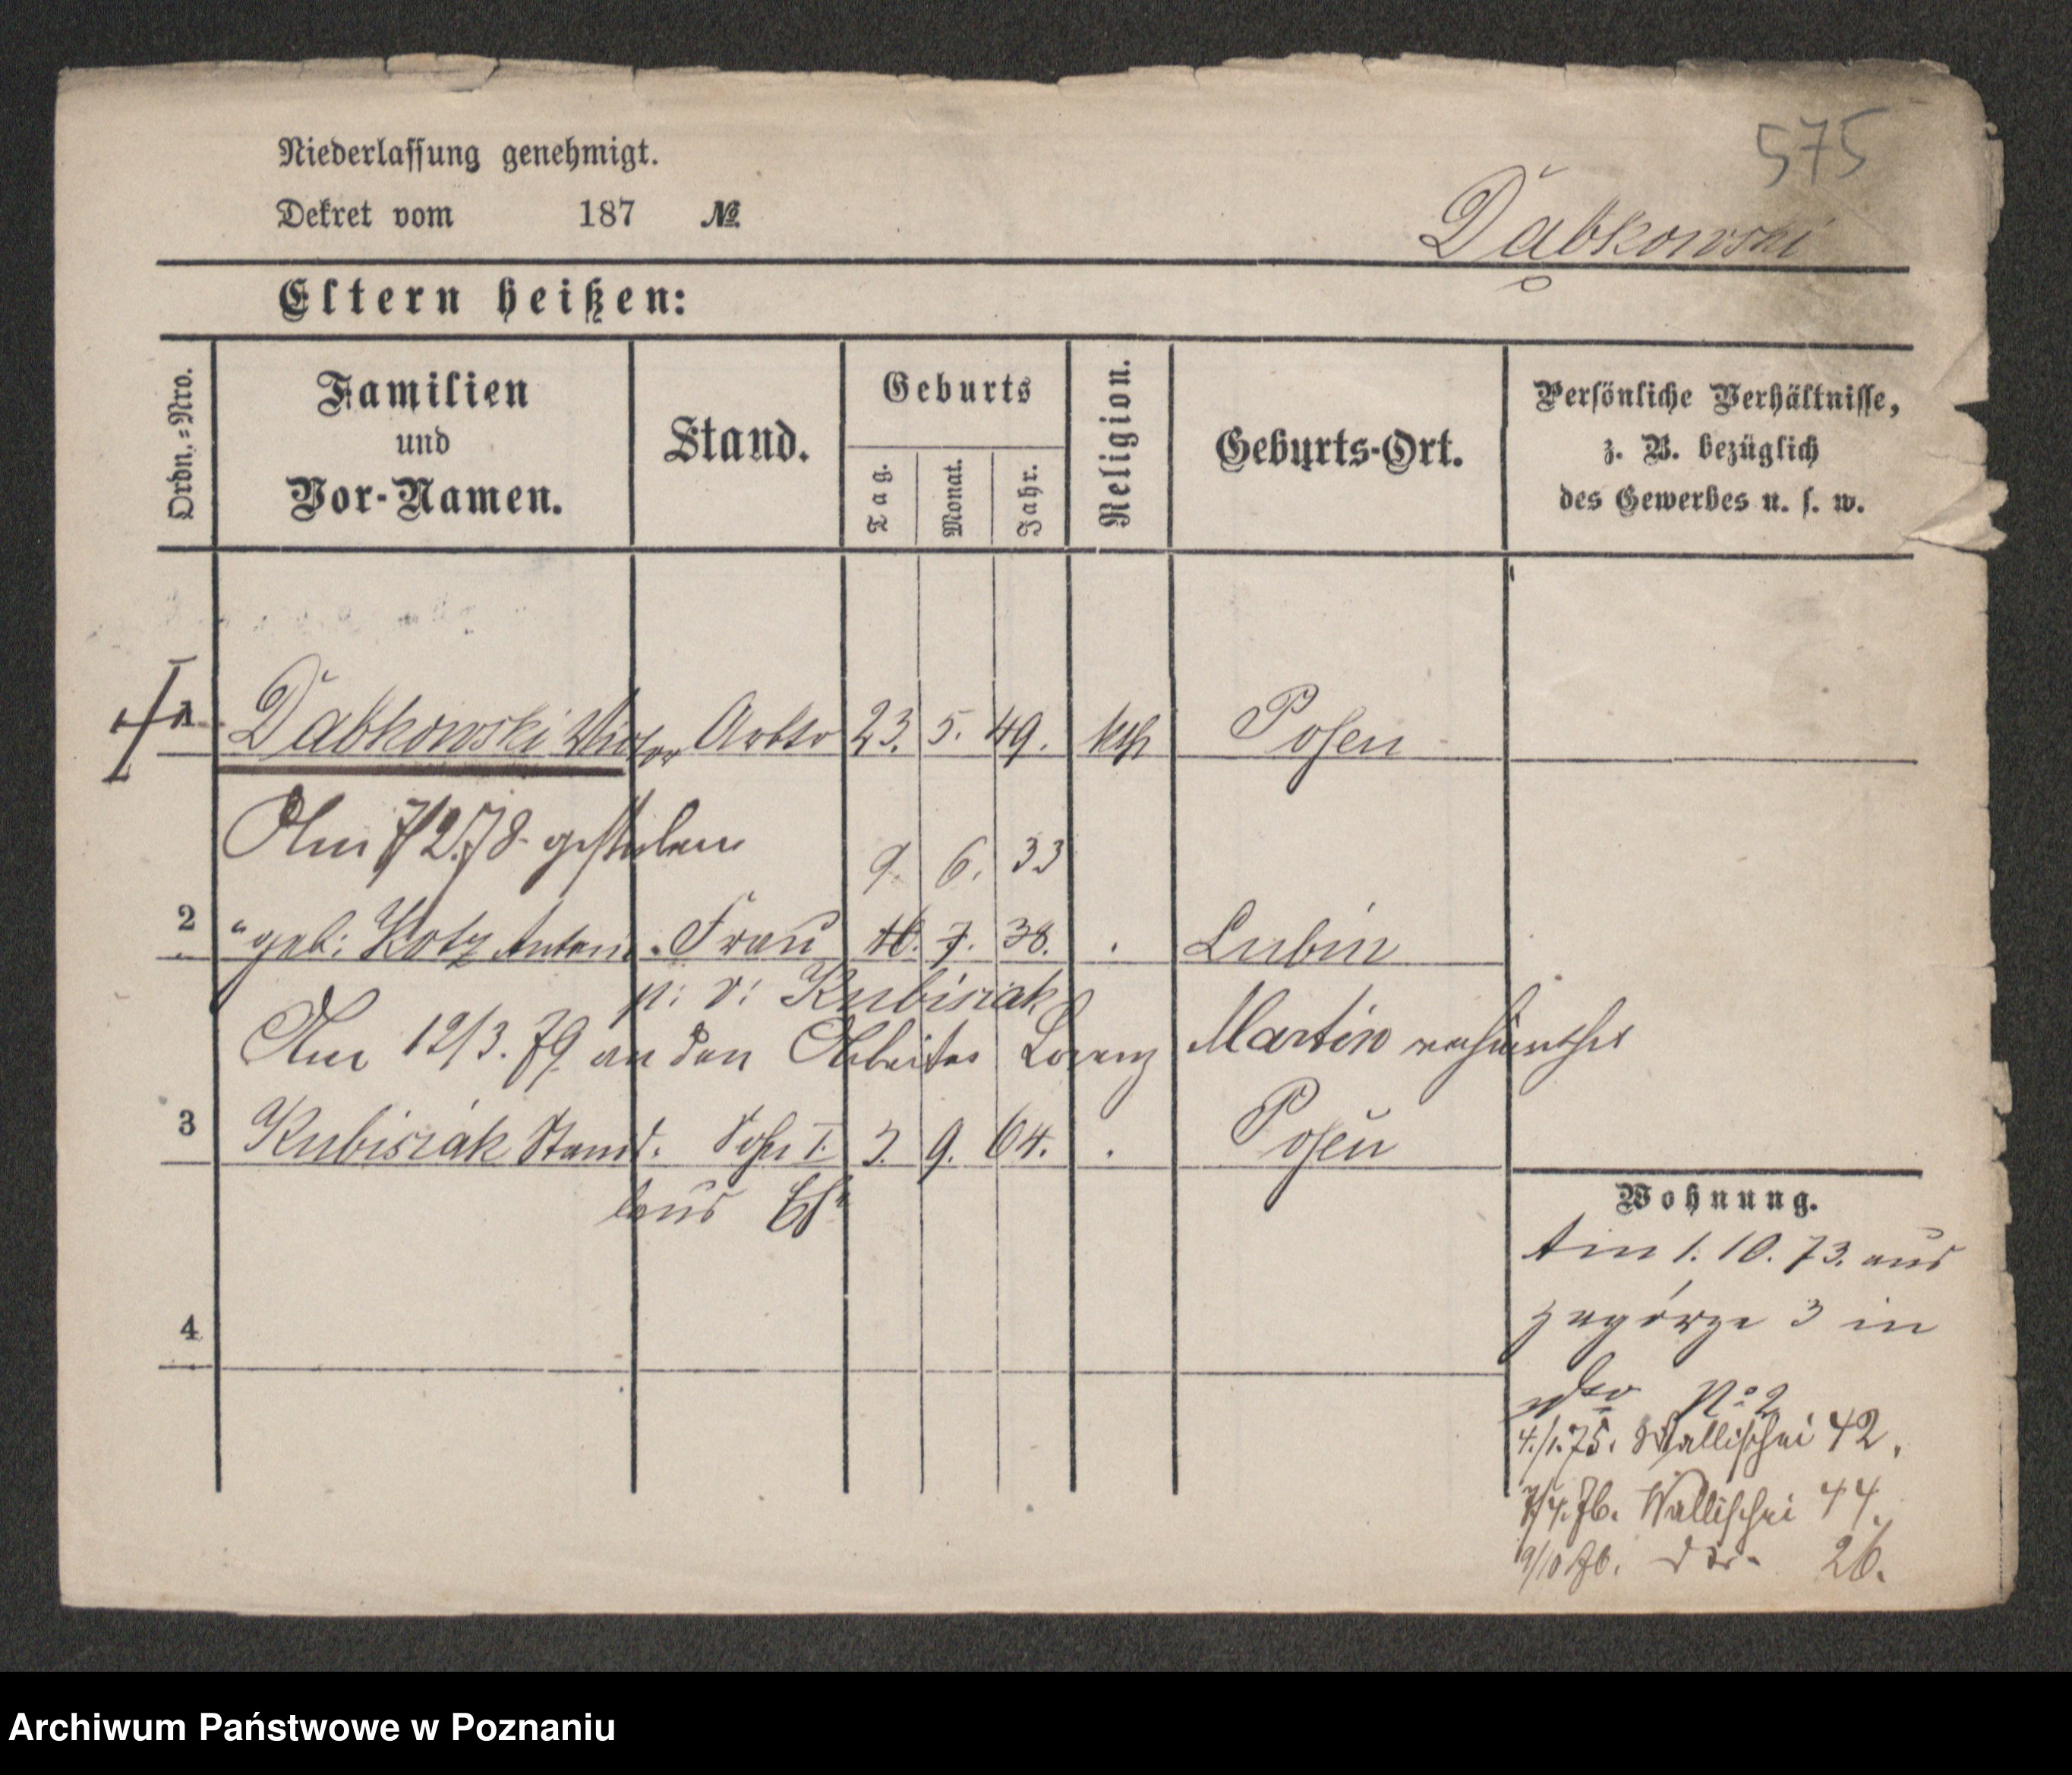 575
Niederlassung genehmigt.
Dekret vom 187 №
Dąbkowski
Eltern heißen:
Ordn.=Nro.
Familien
und
Vor-Namen.
Stand.
Geburts
Tag.
Monat.
Jahr.
Religion.
Geburts-Ort.
Persönliche Verhältnisse,
z. B. bezüglich
des Gewerbes u. s. w.
1 Dabkowski Arbtr 23. 5. 49. kth Posen
Am 7/2.78. gestorben
9. 6. 33
2 " geb: Kotz Antoni. Frau 16. 7. 38. . Lubin
p: v: Kubisiak
Am 12/3. 79 an den Arbeiter Lorenz Martin verheirathet
3 Kubisiak Stanis. Sohn I. 3. 9. 64. . Posen
laus
4
Wohnung.
Am 1. 10. 73. aus
Zagórze 3 in
No 2
4./1.75. Wallischei 42.
7/4.76. Wallischei 44.
9/10 76. do. 26.
Archiwum Państwowe w Poznaniu